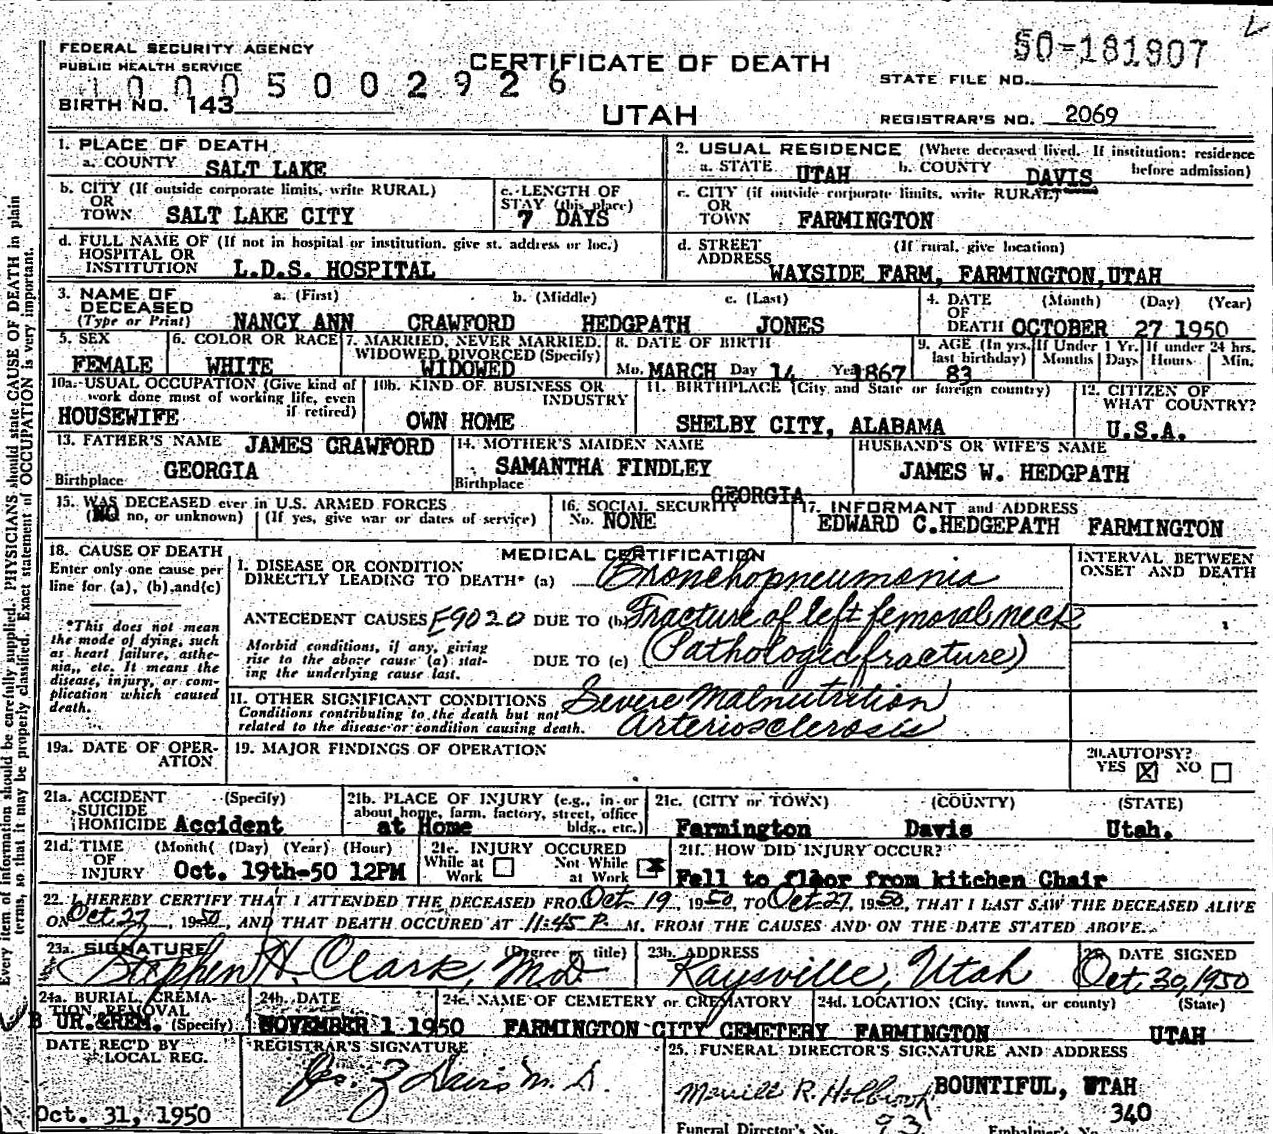 FEDERAL SECURITY AGENCY
PUBLIC HEALTH SERVICE
CERTIFICATE OF DEATH
50-181907
STATE FILE NO.
10005002926
BIRTH NO. 143
UTAH
REGISTRAR'S NO. 2069
1. PLACE OF DEATH
a. COUNTY SALT LAKE
2. USUAL RESIDENCE (Where deceased lived. If institution: residence before admission)
a. STATE UTAH b. COUNTY DAVIS
b. CITY (If outside corporate limits, write RURAL) OR TOWN SALT LAKE CITY
c. LENGTH OF STAY (this place) 7 DAYS
c. CITY (if outside corporate limits, write RURAL) OR TOWN FARMINGTON
d. FULL NAME OF (If not in hospital or institution, give st. address or loc.) HOSPITAL OR INSTITUTION L.D.S. HOSPITAL
d. STREET ADDRESS (If rural, give location) WAYSIDE FARM, FARMINGTON, UTAH
3. NAME OF DECEASED (Type or Print) a. (First) b. (Middle) c. (Last)
NANCY ANN CRAWFORD HEDGPATH JONES
4. DATE OF DEATH (Month) (Day) (Year) OCTOBER 27 1950
5. SEX FEMALE
6. COLOR OR RACE WHITE
7. MARRIED, NEVER MARRIED, WIDOWED, DIVORCED (Specify) WIDOWED
8. DATE OF BIRTH Mo. MARCH Day 14 Yr 1867
9. AGE (In yrs. last birthday) 83 If Under 1 Yr. Months Days If under 24 hrs. Hours Min.
10a. USUAL OCCUPATION (Give kind of work done most of working life, even if retired) HOUSEWIFE
10b. KIND OF BUSINESS OR INDUSTRY OWN HOME
11. BIRTHPLACE (City and State or foreign country) SHELBY CITY, ALABAMA
12. CITIZEN OF WHAT COUNTRY? U.S.A.
13. FATHER'S NAME JAMES CRAWFORD
Birthplace GEORGIA
14. MOTHER'S MAIDEN NAME SAMANTHA FINDLEY
Birthplace GEORGIA
HUSBAND'S OR WIFE'S NAME JAMES W. HEDGPATH
15. WAS DECEASED ever in U.S. ARMED FORCES
(NO no, or unknown) (If yes, give war or dates of service)
16. SOCIAL SECURITY No. NONE
17. INFORMANT and ADDRESS EDWARD C.HEDGEPATH FARMINGTON
18. CAUSE OF DEATH
Enter only one cause per line for (a), (b), and (c)
*This does not mean the mode of dying, such as heart failure, asthenia, etc. It means the disease, injury, or complication which caused death.
MEDICAL CERTIFICATION
INTERVAL BETWEEN ONSET AND DEATH
I. DISEASE OR CONDITION DIRECTLY LEADING TO DEATH* (a) Bronchopneumonia
ANTECEDENT CAUSES E9020 DUE TO (b) Fracture of left femoral neck
Morbid conditions, if any, giving rise to the above cause (a) stating the underlying cause last.
DUE TO (c) (Pathologic fracture)
II. OTHER SIGNIFICANT CONDITIONS Severe Malnutrition
Conditions contributing to the death but not related to the disease or condition causing death. Arteriosclerosis
19a. DATE OF OPERATION
19. MAJOR FINDINGS OF OPERATION
20. AUTOPSY? YES ☒ NO ☐
21a. ACCIDENT SUICIDE HOMICIDE (Specify) Accident
21b. PLACE OF INJURY (e.g., in or about home, farm, factory, street, office bldg., etc.) at Home
21c. (CITY or TOWN) (COUNTY) (STATE)
Farmington Davis Utah.
21d. TIME OF INJURY (Month) (Day) (Year) (Hour) Oct. 19th-50 12PM
21e. INJURY OCCURED While at Work ☐ Not While at Work ☒
21f. HOW DID INJURY OCCUR?
Fell to floor from kitchen Chair
22. I HEREBY CERTIFY THAT I ATTENDED THE DECEASED FROM Oct. 19, 1950, TO Oct. 27, 1950, THAT I LAST SAW THE DECEASED ALIVE
ON Oct 27, 1950, AND THAT DEATH OCCURED AT 11:45 P. M. FROM THE CAUSES AND ON THE DATE STATED ABOVE.
23a. SIGNATURE (Degree or title) Stephen H. Clark, M.D
23b. ADDRESS Kaysville, Utah
DATE SIGNED Oct. 30, 1950
24a. BURIAL, CREMATION, REMOVAL (Specify) BUR.&REM.
24b. DATE NOVEMBER 1 1950
24c. NAME OF CEMETERY or CREMATORY FARMINGTON CITY CEMETERY
24d. LOCATION (City, town, or county) (State) FARMINGTON UTAH
DATE REC'D BY LOCAL REG. Oct. 31, 1950
REGISTRAR'S SIGNATURE
25. FUNERAL DIRECTOR'S SIGNATURE AND ADDRESS
Merrill R. Holbrook BOUNTIFUL, UTAH
93 340
Funeral Director's No. Embalmer's No.
Every item of information should be carefully supplied. PHYSICIANS should state CAUSE OF DEATH in plain
terms, so that it may be properly classified. Exact statement of OCCUPATION is very important.